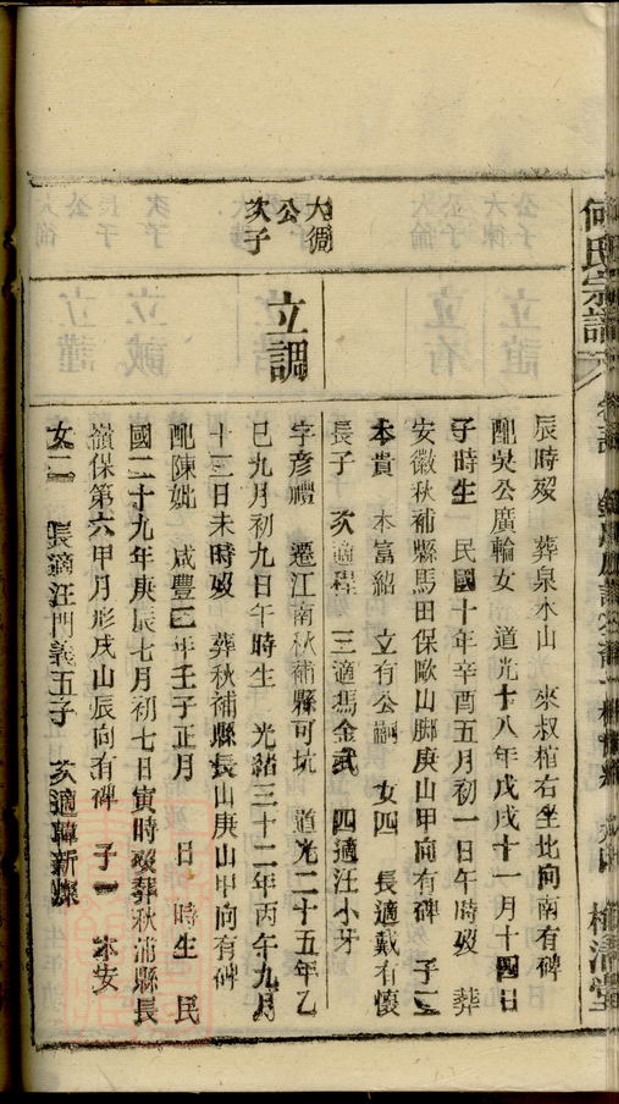 何氏宗譜
辰時歿 葬泉水山 來叔棺右坐北向南有碑
配吳公廣輪女 道光十八年戊戌十一月十四日
子時生 民國十年辛酉五月初一日午時歿 葬
安徽秋補縣馬田保歐山腳庚山甲向有碑 子二
本貴 本富紹 立有公嗣 女四 長適戴有懷
長子 次適程 三適馮金武 四適汪小牙
大徧
公
次子
立調
字彥禮 遷江南秋補縣可坑 道光二十五年乙
巳九月初九日午時生 光緒三十二年丙午九月
十三日未時歿 葬秋補縣長山庚山甲向有碑
配陳妣 咸豐 年壬子正月 日 時生 民
國二十九年庚辰七月初七日寅時歿葬秋浦縣長
嶺保第六甲月形戌山辰向有碑 子一 本安
女二 長適汪門義五子 次適韓新燦